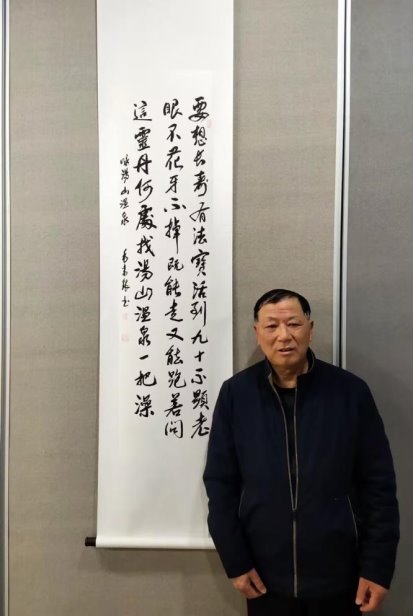 要想长寿有法宝活到九十不顯老
眼不花牙不掉既能走又能跑若问
這靈丹何處找湯山温泉一把澡
咏湯山温泉